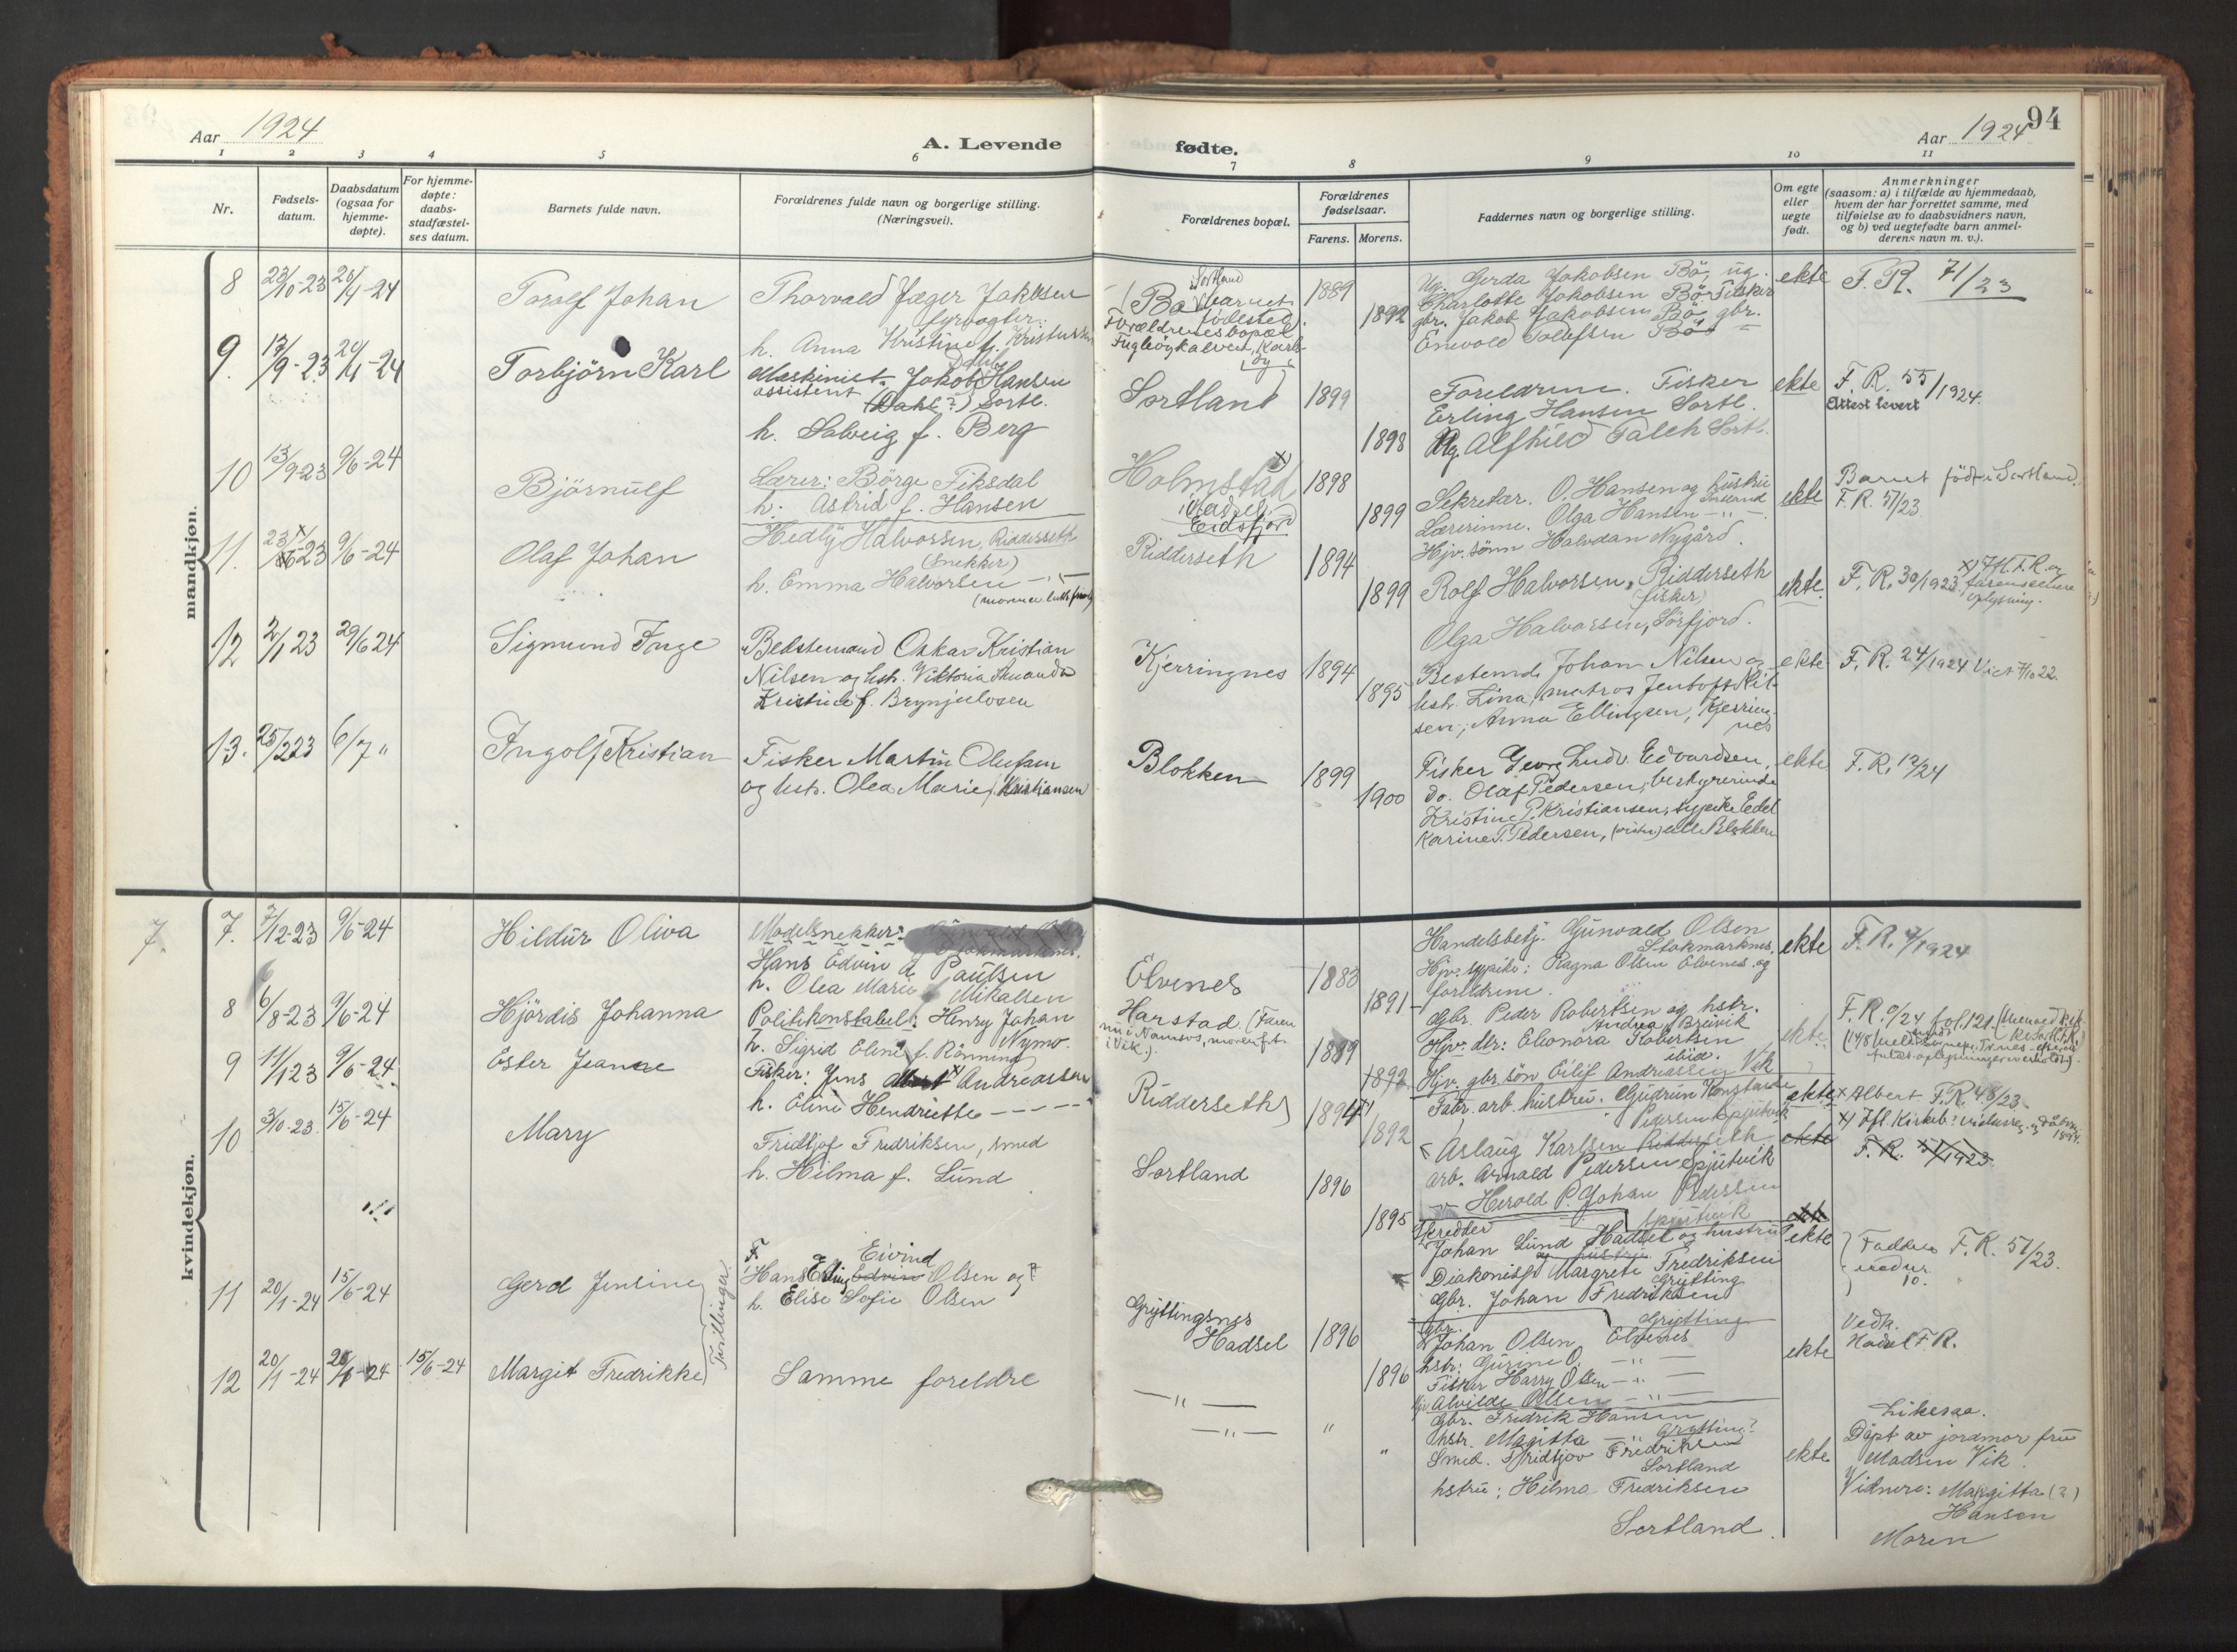 94
Aar 1924
A. Levende
fødte.
Aar 1924
1 2 3 4 5 6 7 8 9 10 11
Nr.
Fødsels-
datum.
Daabsdatum
(ogsaa for
hjemme-
døpte).
For hjemme-
døpte:
daabs-
stadfæstel-
ses datum.
Barnets fulde navn.
Forældrenes fulde navn og borgerlige stilling.
(Næringsvei).
Forældrenes bopæl.
Forældrenes
fødselsaar.
Farens. Morens.
Faddernes navn og borgerlige stilling.
Om egte
eller
uegte
født.
Anmerkninger
(saasom: a) i tilfælde av hjemmedaab,
hvem der har forrettet samme, med
tilføielse av to daabsvidners navn,
og b) ved uegtefødte barn anmel-
derens navn m. v.).
mandkjøn.
8 23/10-23 20/4-24
Torolf Johan
Thorvald Jæger Jakobsen
fyrvogter.
h. Anna Kristine f. Kristussen
Sortland
Bø (barnets
fødested.
Forældrenes bopæl
1889
1892
Ug. Gerda Jakobsen Bø, ug.
Charlotte Jakobsen Bø. Fisker
gbr. Jakob Jakobsen Bø gbr.
Enevold Tolefsen Bø
ekte
F. R. 71/23
9. 13/9-23 20/4-24
Torbjörn Karl
Maskinist- Jakob Hansen
assistent (Dahl?) Sortl.
h. Solveig f. Berg
Sortland
1899
1898
Foreldrene. Fisker
Erling Hansen Sortl.
Ug. Alfhild Falch Sortl.
ekte
F. R. 55/1924.
Attest levert
10 13/9-23 9/6-24
Björnulf
Lærer: Börge Fiksdal
h: Astrid f. Hansen
Holmstad x)
i Hadsel.
Eidsfjord
1898
1899
Sekretær. O. Hansen og hustru
Lærerinne. Olga Hansen -"-
Hjv. sønn Halvdan Nygård.
ekte
Barnet født i Sortland.
F. R. 57/23
11. 23/6-23 9/6-24
Olaf Johan
Hedly Halvorsen, Ridderseth
(Snekker)
h. Emma Halvorsen -"-
Ridderseth
1894
1899
Rolf Halvorsen, Ridderseth
(fisker)
Olga Halvorsen, Sörfjord.
ekte.
F. R. 30/1923
x) Ifl. F.R. og
farens senere
oplysning.
12 2/1 23 29/6 24
Sigmund Inge
Bedstemand Oskar Kristian
Nilsen og hstr. Viktoria Amanda
Kristine f. Brynjulvsen
Kjerringnes
1894
1895
Bestemd. Johan Nilsen og
hstr. Lina, matros Jentoft Nil-
sen, Anna Ellingsen, Kjerring-
nes
ekte
F. R. 24/1924 Viet 7/10 22.
13. 25/2 23 6/7 "
Ingolf Kristian
Fisker Martin Olufsen
og hstr. Olea Marie f. Kristiansen
Blokken
1899
1900
Fisker Georg Ludv. Edvardsen,
do. Olaf Pedersen, bestyrerinde
Kristine P. Kristiansen, sypike Edel
Karine P. Pedersen, alle Blokken
ekte
F. R. 12/24
kvindekjøn.
7. 7. 7/12-23 9/6-24
Hildur Oliva
Modelsnekker:
Hans Edvin A. Paulsen
h. Olea Marie Mikalsen
Elvenes
1883
1891
Handelsbetj. Gunvald Olsen
Stokmarknes.
Hjv. sypike: Ragna Olsen Elvenes og
foreldrene.
ekte
F. R. 4/1924
8 6/8-23 9/6-24
Hjördis Johanna
Politikonstabel: Henry Johan
Nymo.
h. Sigrid Eline f. Rönning
Harstad. (Faren
nu i Namsos, moren f.t.
i Vik.).
1889
1892
Gbr. Peder Robertsen og hstr.
Andrea, Breivik
Hjv: dtr: Eleonora Robertsen
ibid.
Hjv. gbr. søn Eilif Andreassen Vik
ekte
F. R. 9/24 fol. 121.
9 11/1 23 9/6-24.
Ester Jeanne
Fisker: Jens x) Andreassen
h. Eline Hendriette -----
Ridderseth
1894
1892
Fabr. arb. hustru. Gudrun Konstanse
Pedersen Spjutvik
Aslaug Karlsen Ridderseth
arb. Arnold Pedersen Spjutvik
-"- Herold P. Johan Pedersen
Spjutvik
ekte
x Albert F. R. 48/23
ekte
F. R. 51/1923
10 3/10-23. 15/6-24
Mary
Fridtjof Fredriksen, smed
h. Hilma f. Lund
Sortland
1896
1895
Skredder
Johan Lund Hadsel og hustru
Diakonisse Margrete Fredriksen
Grytting
Gbr. Johan Fredriksen
Grytting
ekte
Faddere
nedur
10.
F. R. 51/23.
11 20/1-24 15/6-24
Gerd Jensine
Tvillinger.
F.
Hans Erling Edvin Eivind Olsen og
h. Elise Sofie Olsen
Gryttingsnes
Hadsel
1896
1896
Gbr.
Johan Olsen Elvenes
hstr: Gurine O. -"-
Fisker Harry Olsen -"-
Hjv. Alvilde Olsen -"-
ekte
Vedk.
Hadsel F. R.
12 20/1-24 20/1-24 15/6-24
Margit Fredrikke
Samme foreldre
-"-
-"-
"
"
Gbr. Fredrik Hansen
hstr. Magitta -"- Grytting?
Smed. Fridtjov Fredriksen
Sortland
hstru: Hilma Fredriksen
Sortland.
ekte
Likesaa.
Døpt av jordmor fru
Madsen Vik.
Vidner: Margitta (?)
Hansen
Moren